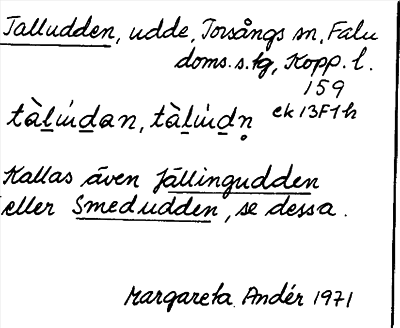 Talludden, udde, Torsångs sn, Falu
doms.s.tg, Kopp. l.
159
tàl̲úd̲an, tàl̲úd̲n̥ ek 13F1h
Kallas även Jällingudden
eller Smedudden, se dessa.
Margareta Andér 1971